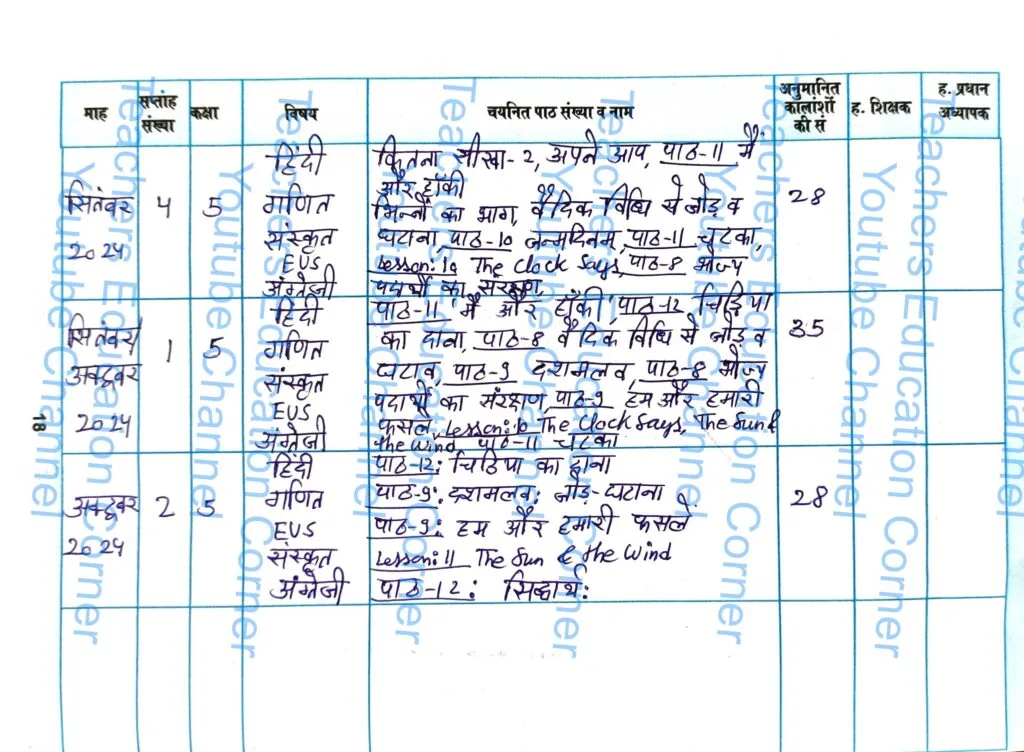 माह सप्ताह संख्या कक्षा विषय चयनित पाठ संख्या व नाम अनुमानित कालांशों की सं ह. शिक्षक ह. प्रधान अध्यापक
हिंदी कितना सीखा-2, अपने आप, पाठ-11 मैं
और हॉकी
सितंबर 4 5 गणित भिन्नों का भाग, वैदिक विधि से जोड़ व 28
2024 संस्कृत घटाना, पाठ-10 जन्मदिनम्, पाठ-11 चटका,
EVS Lesson:10 The Clock Says, पाठ-8 भोज्य
अंग्रेजी पदार्थों का संरक्षण,
हिंदी पाठ-11 मैं और हॉकी, पाठ-12 चिड़िया
सितंबर/ 1 5 गणित का दाना, पाठ-8 वैदिक विधि से जोड़ व 35
अक्टूबर संस्कृत घटाव, पाठ-9 दशमलव, पाठ-8 भोज्य
EVS पदार्थों का संरक्षण, पाठ-9 हम और हमारी
2024 अंग्रेजी फसलें, Lesson:10 The Clock Says, The Sun &
the Wind, पाठ-11 चटका
हिंदी पाठ-12: चिड़िया का दाना
अक्टूबर 2 5 गणित पाठ-9: दशमलव: जोड़-घटाना 28
2024 EVS पाठ-9: हम और हमारी फसलें
संस्कृत Lesson:11 The Sun & the Wind
अंग्रेजी पाठ-12: सिद्धार्थ:
18
Teachers Education Corner
Youtube Channel
Teachers Education Corner
Youtube Channel
Teachers Education Corner
Youtube Channel
Teachers Education Corner
Youtube Channel